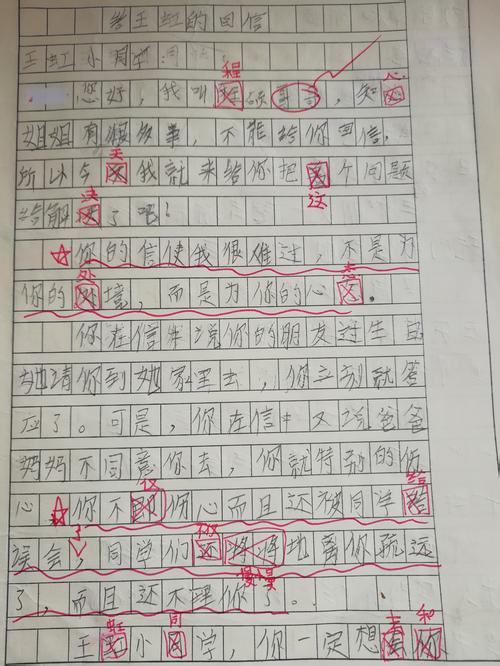 给王虹的回信
王虹小同学:
您好,我叫程硕哥哥,知心
姐姐有很多事,不能给你回信,
所以今天我就来给你把这个问题
给解决了吧!
你的信使我很难过,不是为
你的处境,而是为你的心态。
你在信中说你的朋友过生日
她请你到她家里去,你立刻就答
应了。可是,你在信中又说爸爸
妈妈不同意你去,你就特别的伤
心 你不仅伤心而且还被同学给
误会了,同学们不仅慢慢地离你疏远
了,而且还不理你了。
王虹小同学,你一定想去和你